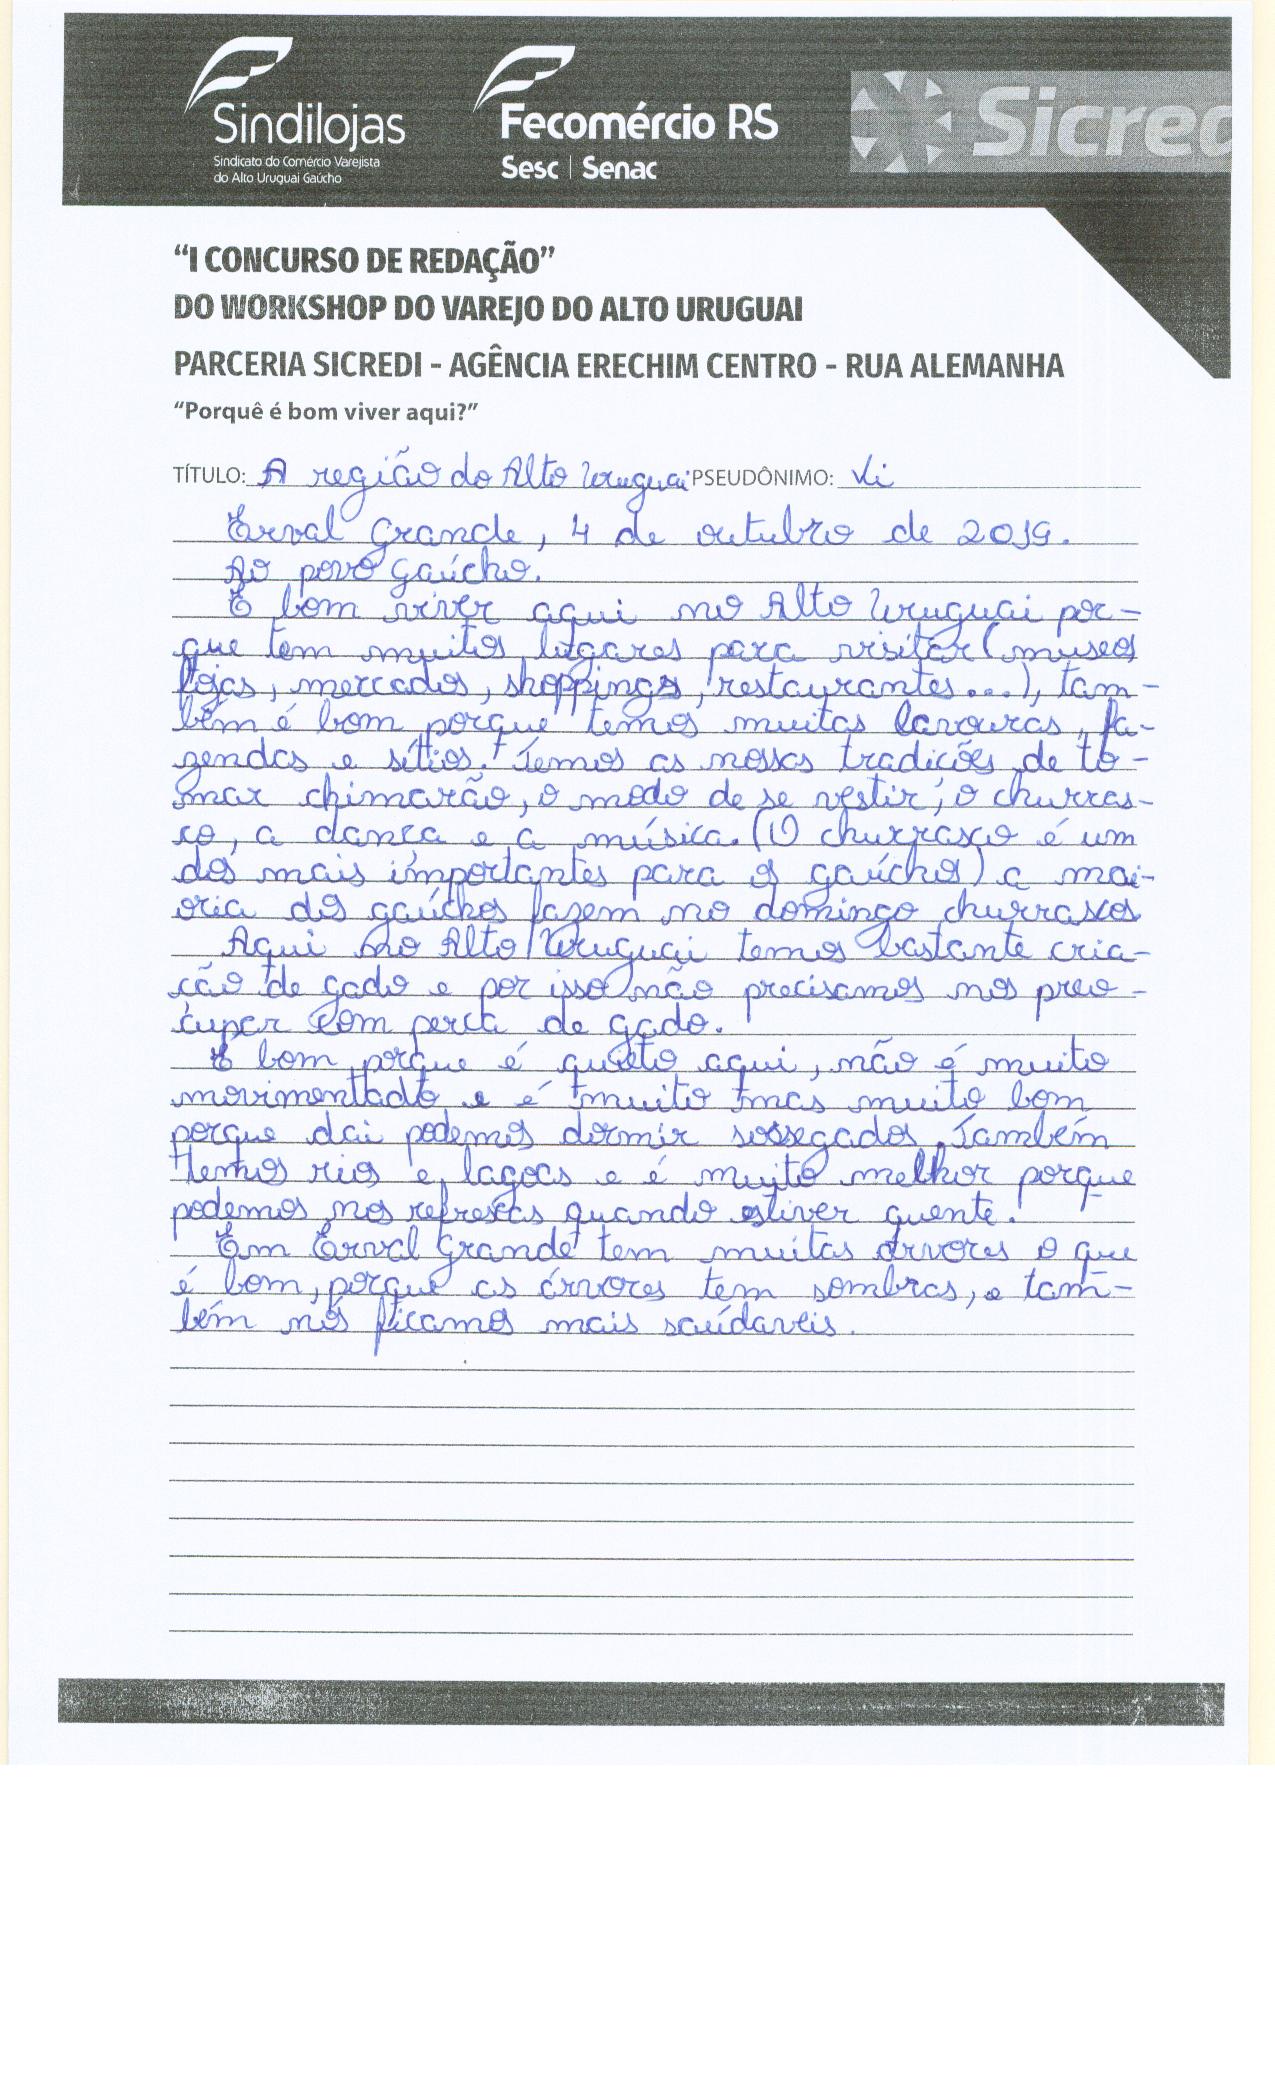 Sindilojas
Sindicato do Comércio Varejista
do Alto Uruguai Gaúcho
Fecomércio RS
Sesc | Senac
Sicred
“I CONCURSO DE REDAÇÃO”
DO WORKSHOP DO VAREJO DO ALTO URUGUAI
PARCERIA SICREDI - AGÊNCIA ERECHIM CENTRO - RUA ALEMANHA
“Porquê é bom viver aqui?”
TÍTULO: A região do Alto Uruguai PSEUDÔNIMO: Li
Erval Grande, 4 de outubro de 2019.
Ao povo Gaúcho.
É bom viver aqui no Alto Uruguai por-
que tem muitos lugares para visitar (museos
lojas, mercados, shoppings, restaurantes...), tam-
bém é bom porque temos muitas lavouras, fa-
zendas e sítios. Temos as nossas tradições de to-
mar chimarão, o modo de se vestir, o churras-
co, a dança e a música. (O churrasco é um
dos mais importantes para os gaúchos) a mai-
oria dos gaúchos fazem no domingo churrascos
Aqui no Alto Uruguai temos bastante cria-
ção de gado e por isso não precisamos nos preo-
cupar com perca de gado.
É bom porque é quieto aqui, não é muito
movimentado e é muito mas muito bom
porque dai podemos dormir sossegados. Também
temos rios e lagoas e é muito melhor porque
podemos nos refrescas quando estiver quente.
Em Erval Grande tem muitas árvores o que
é bom, porque as árvores tem sombras, e tam-
bém nós ficamos mais saúdaveis.